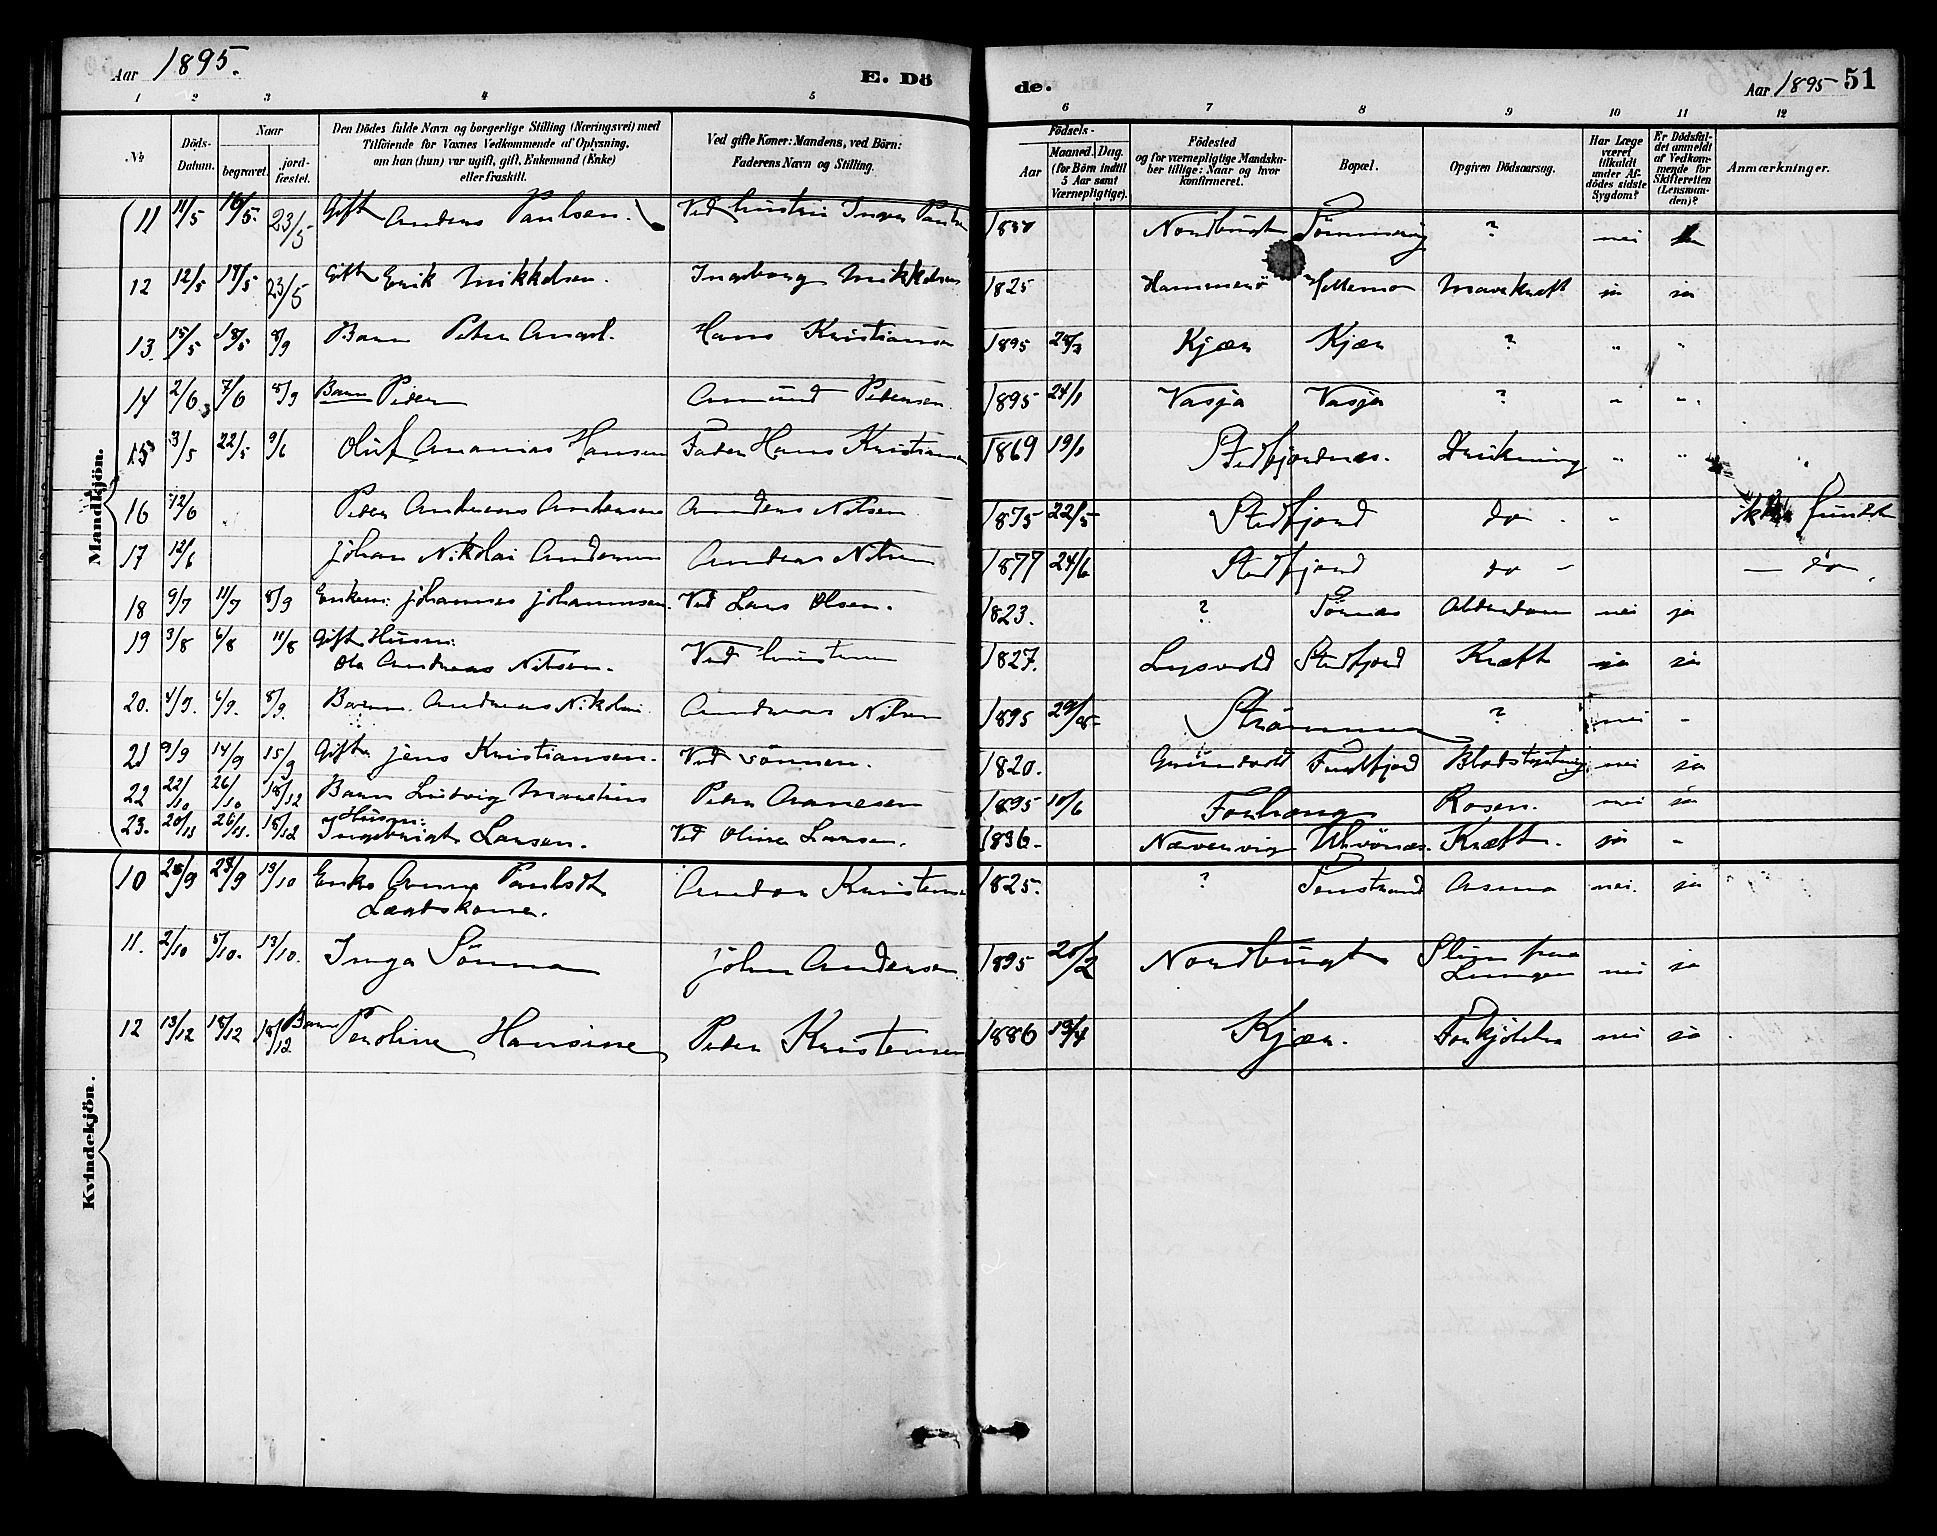 Aar 1895. E. Dö de. Aar 1895 51
1 2 3 4 5 6 7 8 9 10 11 12
No
Döds-Datum.
Naar
begravet. jordfæstet.
Den Dödes fulde Navn og borgerlige Stilling (Næringsvei) med
Tilföiende for Voxnes Vedkommende af Oplysning,
om han (hun) var ugift, gift, Enkemand (Enke)
eller fraskilt.
Ved gifte Koner: Mandens, ved Börn:
Faderens Navn og Stilling.
Födsels-
Aar
Maaned. Dag.
(for Börn indtil
5 Aar samt
Værnepligtige).
Födested
og for værnepligtige Mandska-
ber tillige: Naar og hvor
konfirmeret.
Bopæl.
Opgiven Dödsaarsag.
Har Læge
været
tilkaldt
under Af-
dödes sidste
Sygdom?
Er Dödsfal-
det anmeldt
af Vedkom-
mende for
Skifteretten
(Lensman-
den)?
Anmærkninger.
Mandkjön.
11 11/5 16/5. 23/5 Gift Anders Paulsen. Ved hustru Inger 1830 Nordbugt ? nei
12 12/5 17/5 23/5 Gift Erik Mikkelsen. Ingeborg Mikkelsen 1825 Hammerö Hellemo Mavekræft ja ja
13. 15/5 18/5 8/9 Barn Peter Hans Kristiansen 1895 Kjær Kjær ? " "
14 2/6 7/6 8/9 Barn Peder Amund Petersen. 1895 24/1 Vasja Vasja ? " "
15 3/5 22/5 9/6 Oluf Ananias Hansen Fader Hans Kristiansen 1869 19/1 Stedfjordnes. Drukning " "
16 12/6 Peter Andreas Andersen Anders Nilsen 1875 22/5 Stedfjord do - " ikke fundet
17 12/6 Johan Nikolai Andersen Andreas Nilsen 1877 24/6 Stedfjord do - — do.
18 9/7 11/7 8/9 Enkem: Johannes Johannesen. Ved Lars Olsen. 1823. ? Tömnes Alderdom nei ja
19 3/8 6/8 11/8 Gift Husm:
Ole Andreas Nilsen. Ved hustruen 1827. Lysvold Stedfjord Kræft ja ja
20. 4/9. 6/9. 8/9. Barn Andreas Nikolai. Andreas Nilsen 1895 Strömmen ? nei -
21 9/9 14/9 15/9 Gift Jens Kristiansen. Ved sönnen. 1820. Grundvold Blodstyrtning nei ja
22 22/10 26/10 18/12 Barn Ludvig Martius Peter Arnesen 1895 10/6 Forhang Rosen. nei ja
23. 20/11 26/11. 18/12 Husm:
Ingebrigt Larsen. Ved Oline Larsen. 1836- Nævervig Kræft. ja -
Kvindekjön.
10 28/9 13/10 Enke Anne Paulsdt
Lægdskone. Kristensen 1825. ? Asma nei. ja
11. 2/10 5/10. 13/10. Inga Sönna John Andersen 1895 20/2 Nordbugt Slim paa
Lungen nei ja
12 13/12 18/12 18/12 Barn Peroline Hansine Peter Kristensen 1886 13/4 Kjær. Forkjölelse nei ja